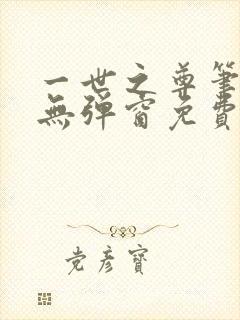 一世之尊筆
無彈窗免費
党彦寶